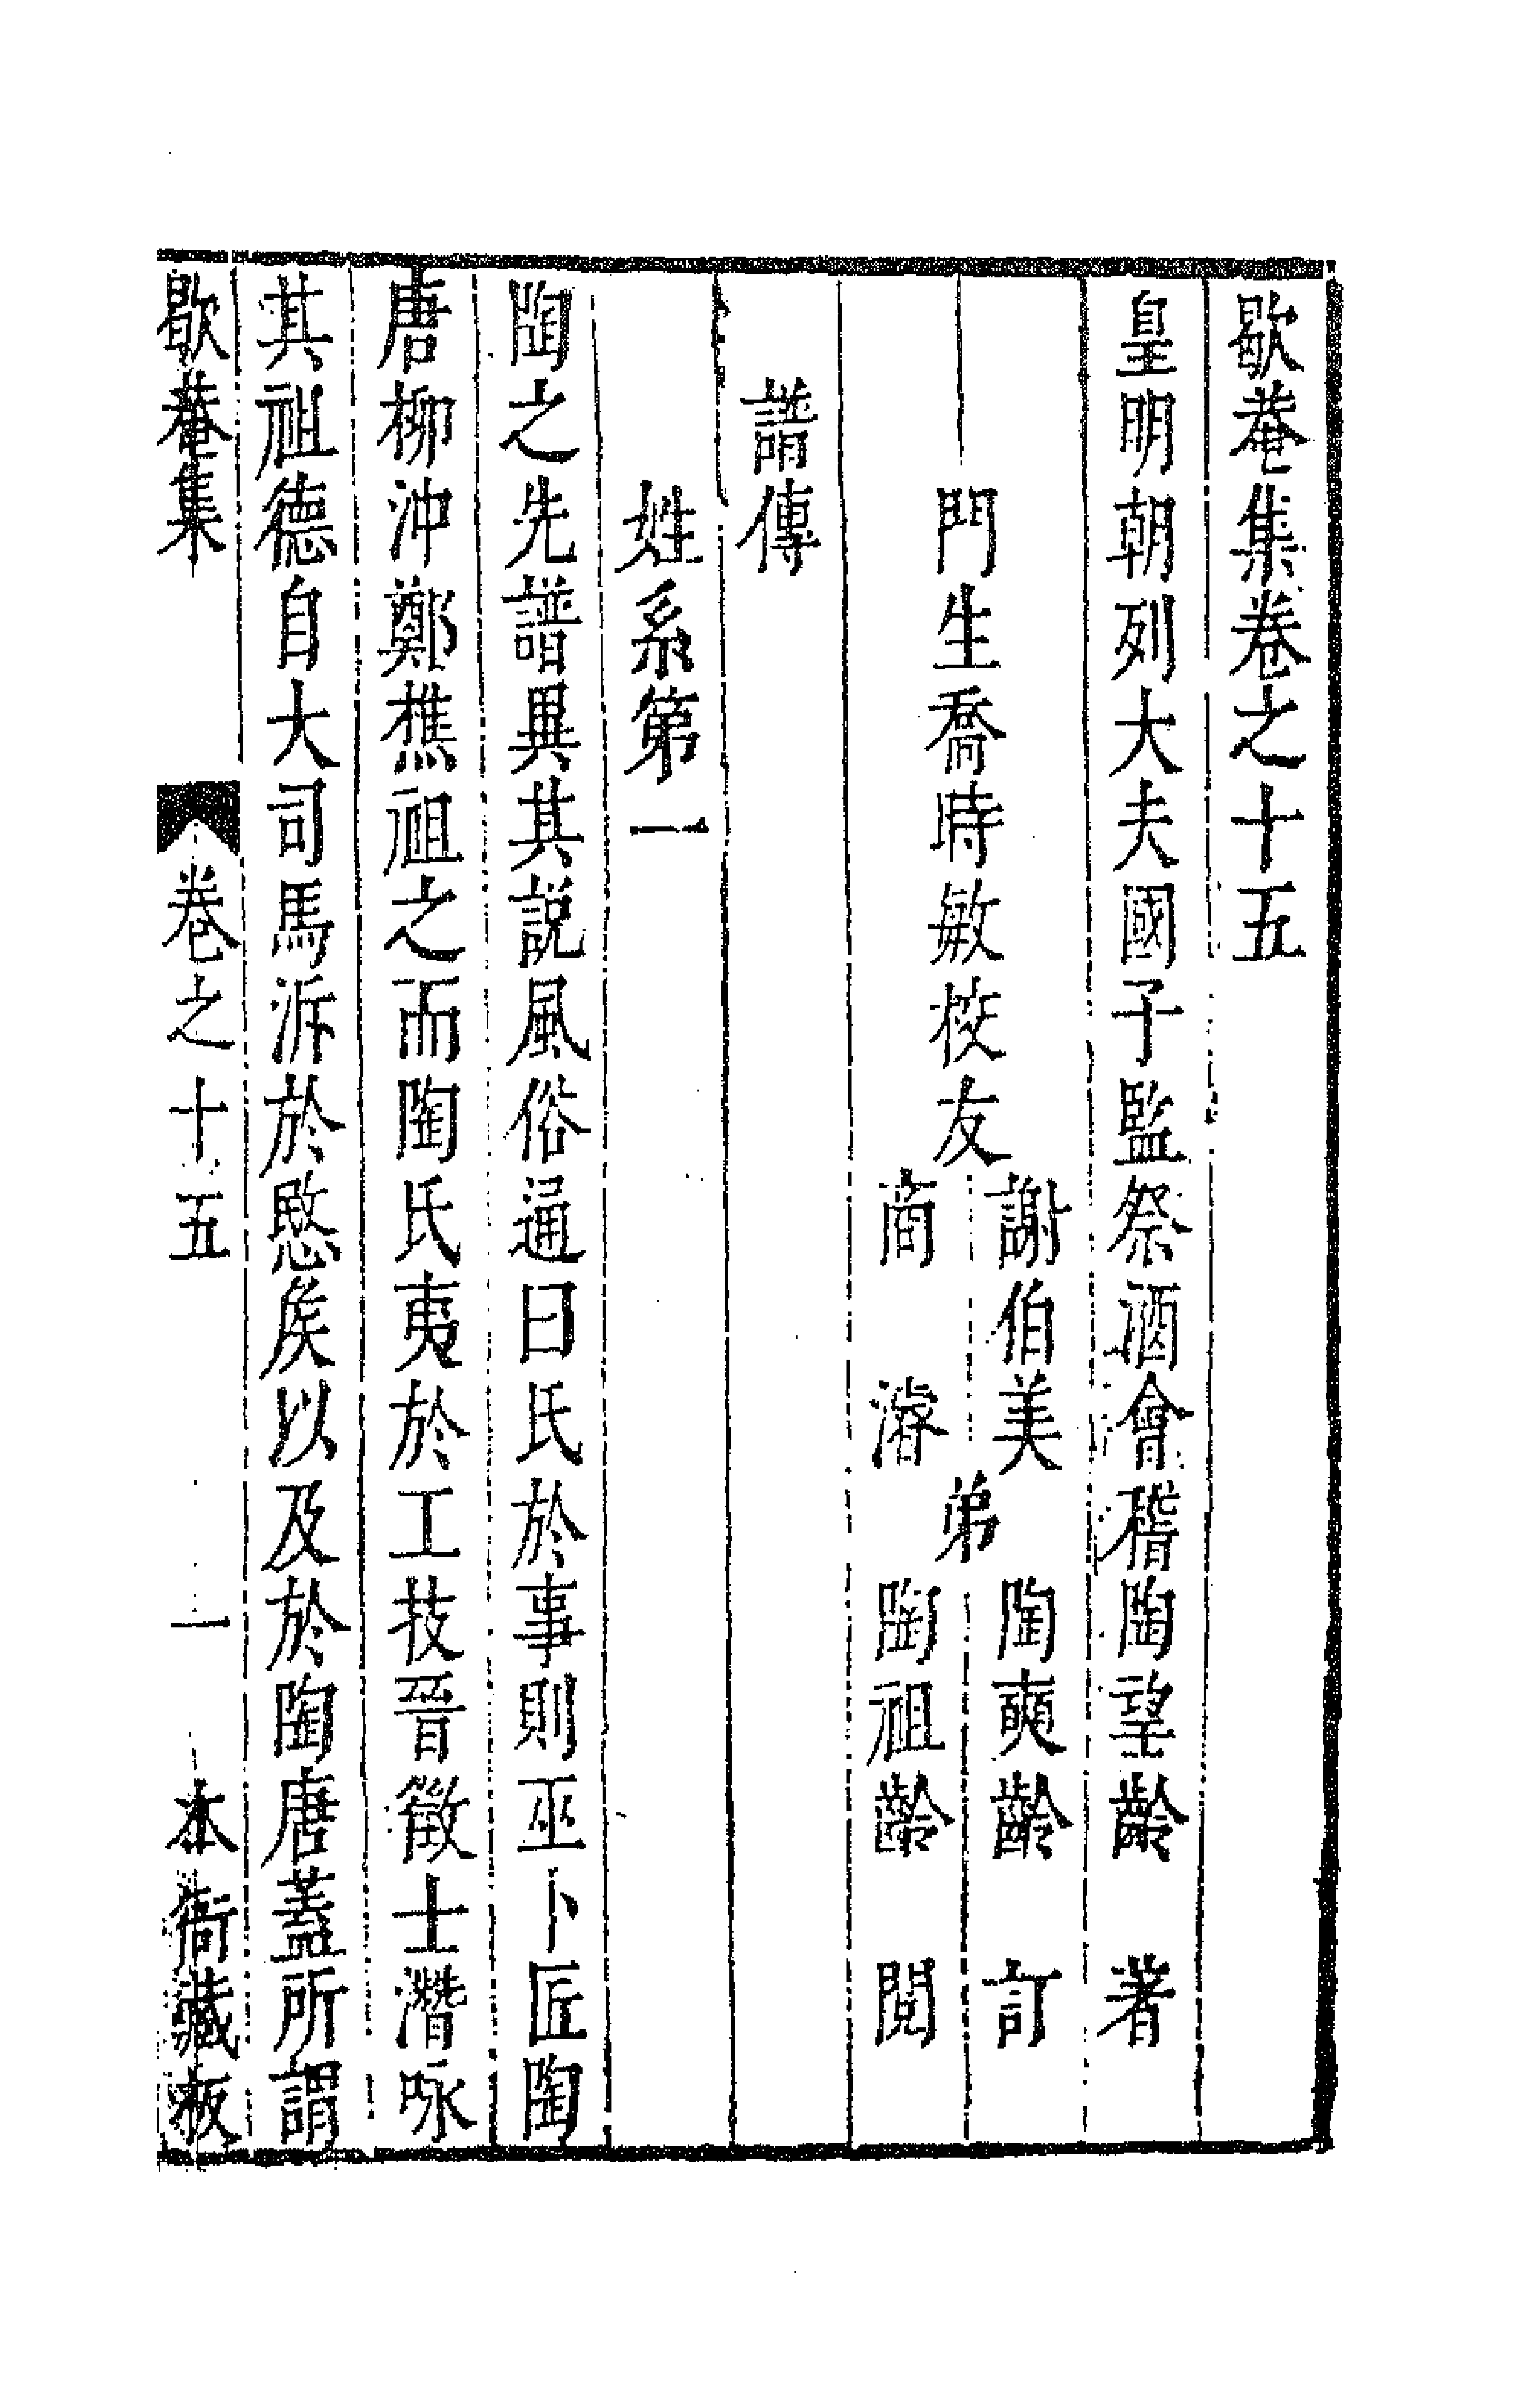 歇菴集卷之十五
皇明朝列大夫國子監祭酒會稽陶望齡　著
門生喬時敏校友　謝伯美　商濬　弟　陶奭齡　訂　陶祖齡　閱
譜傳
姓系第一
陶之先譜異其説風俗通曰氏於事則巫卜匠陶
唐柳沖鄭樵祖之而陶氏夷於工技晉徵士潛咏
其祖德自大司馬泝於愍矦以及於陶唐蓋所謂
歇菴集　卷之十五　一　本衙藏板